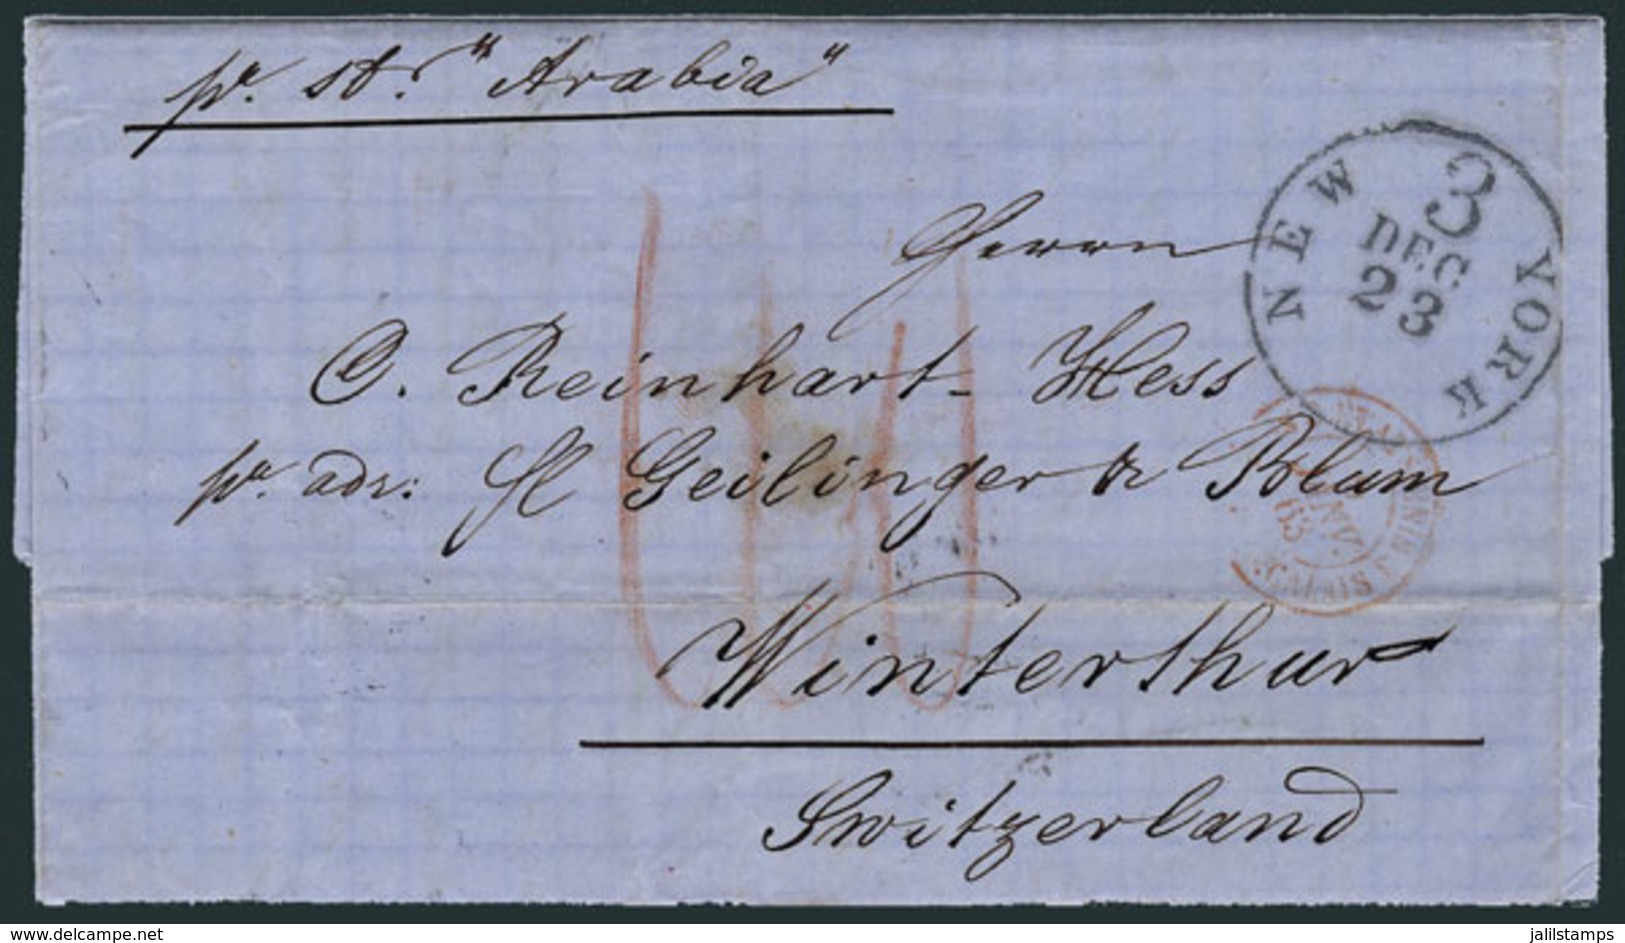 pr. st. "Arabia"
NEW YORK
3
DEC
23
Herrn
C. Reinhart-Hess
pr. adr: Geilinger & Blum
63
CALAIS
Winterthur
Switzerland
www.delcampe.net
jalilstamps